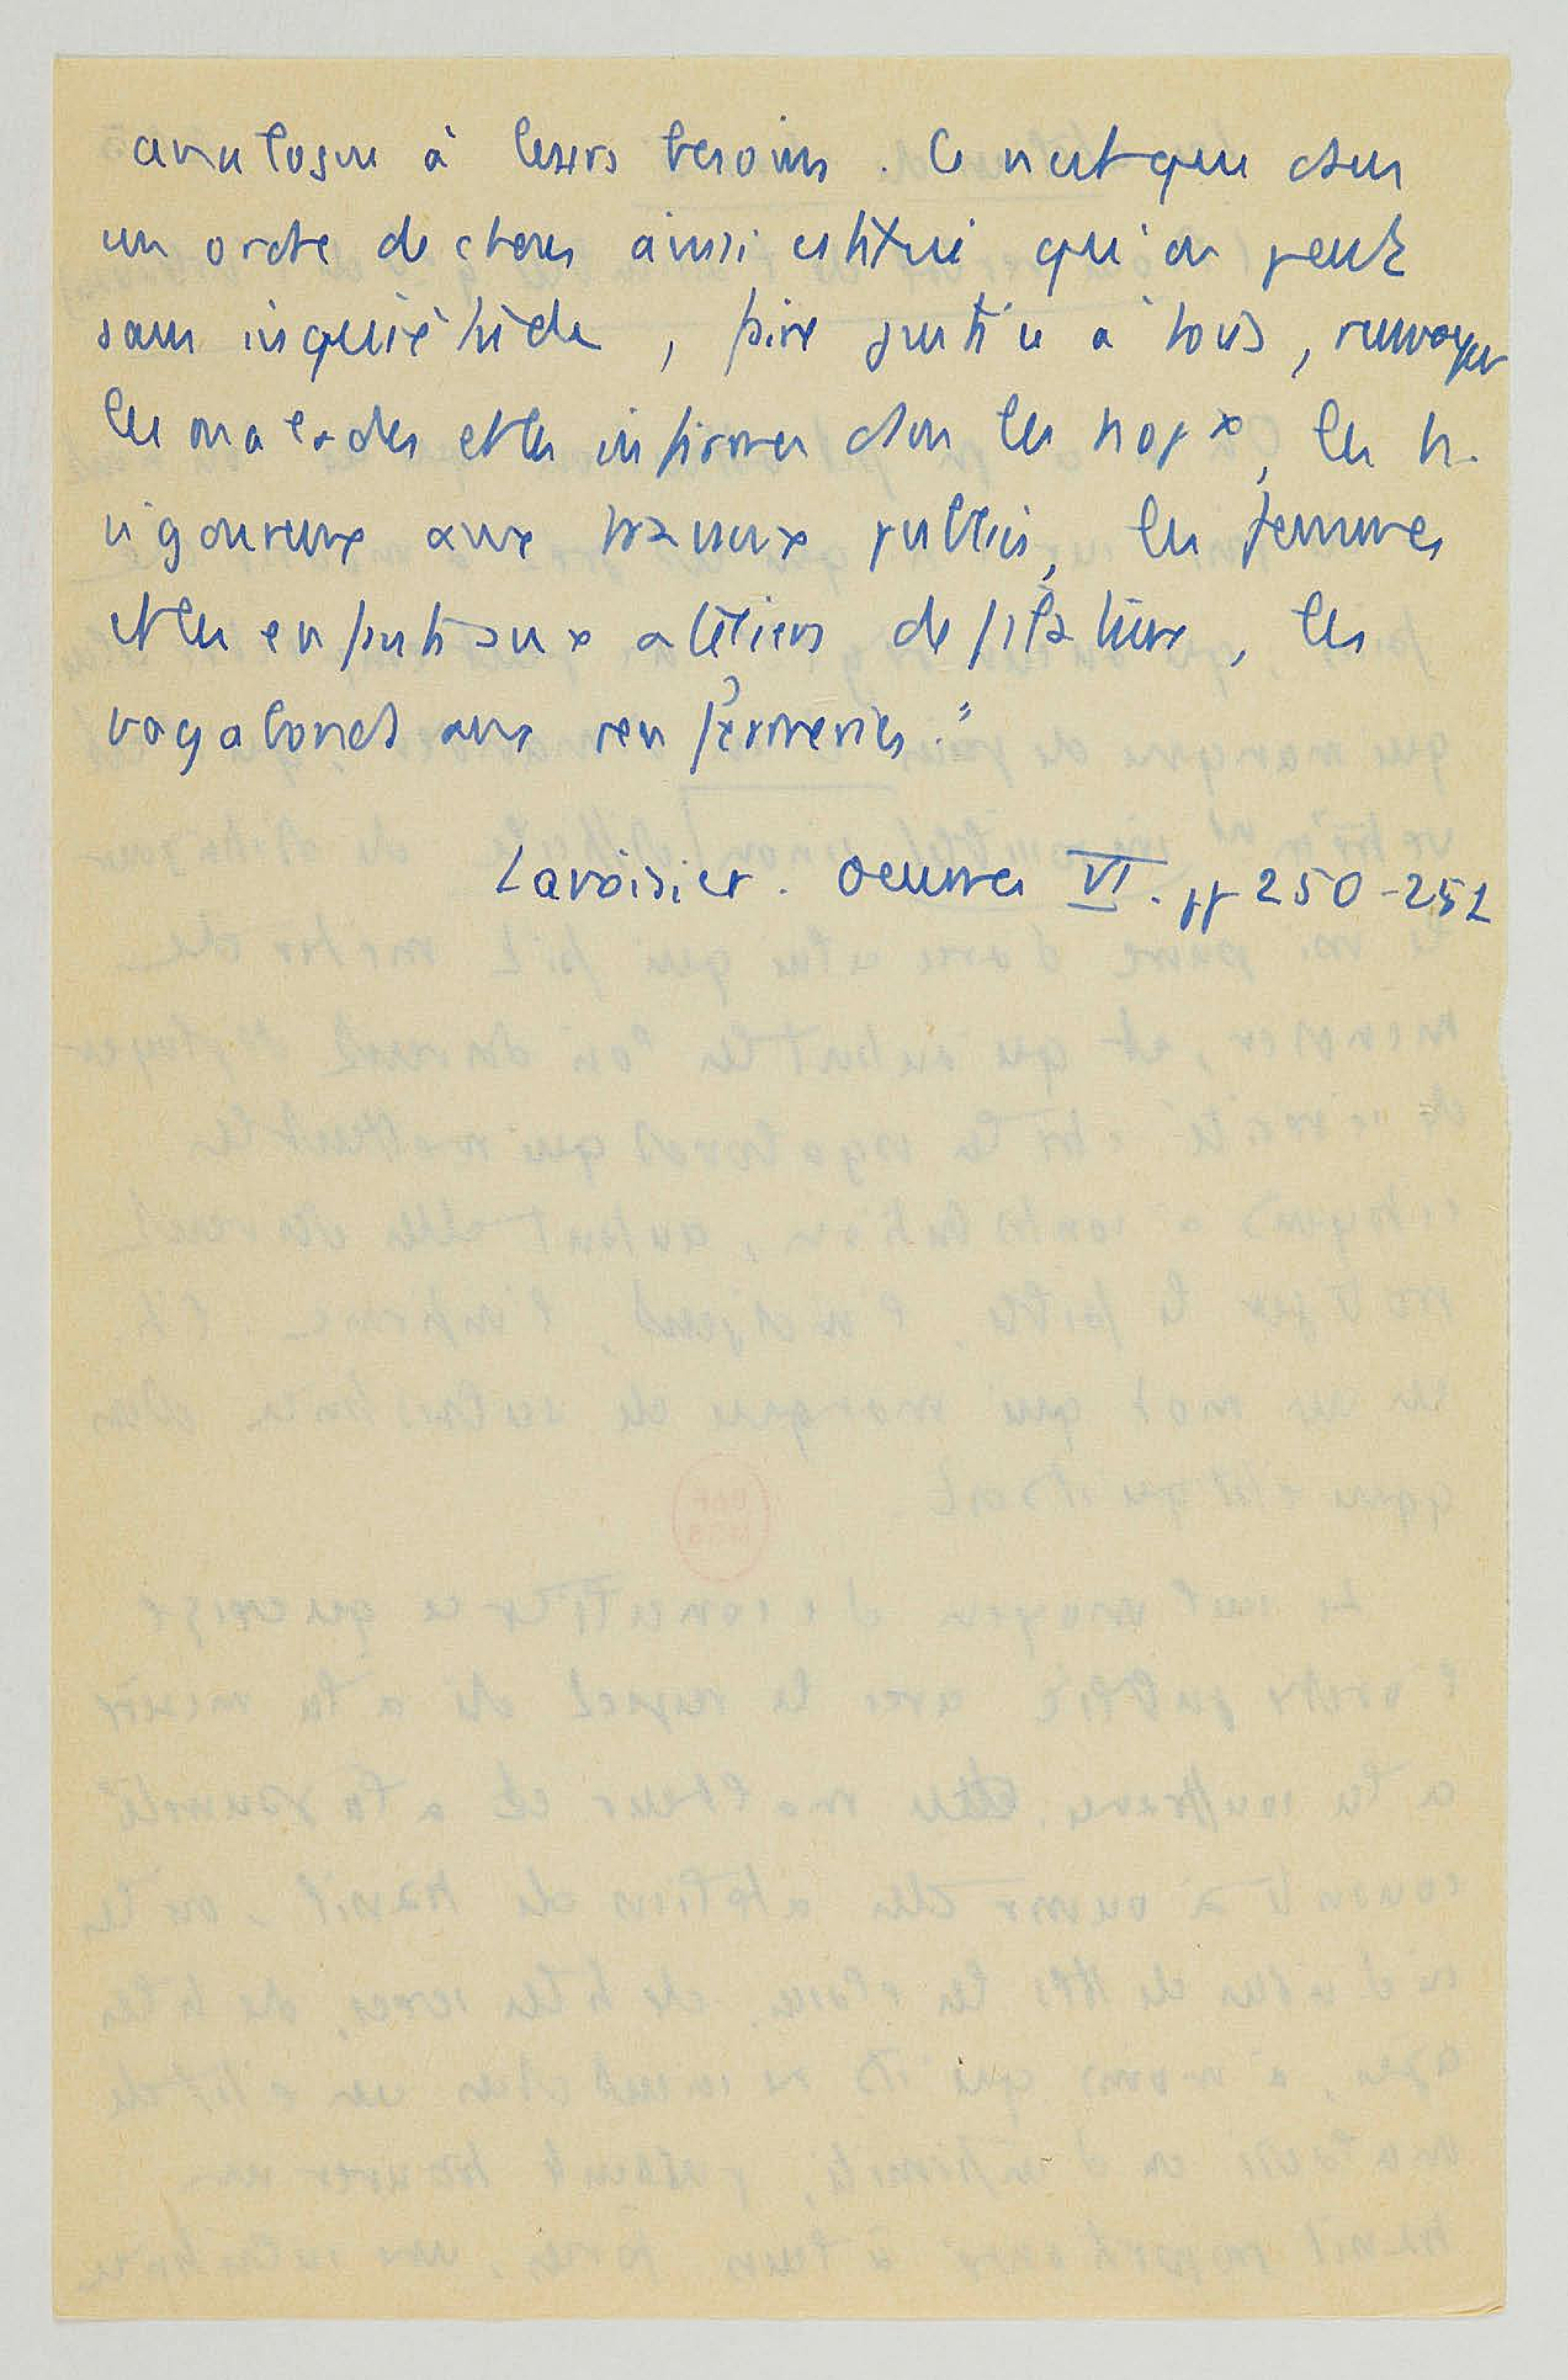 analogue à leurs besoins. Ce n'est que dans
un ordre de choses ainsi institué qu'on peut
sans inquiétude, faire justice à tous, renvoyer
les malades et les infirmes dans les hopx, les h.
vigoureux aux travaux publics, les femmes
et les enfants aux ateliers de filature, les
vagabonds aux renfermeries."
Lavoisier. Oeuvres VI. pp 250-252